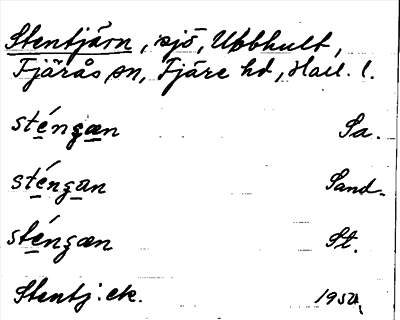 Stentjärn, sjö, Ubbhult,
Fjärås sn, Fjäre hd, Hall. l.
sténgæn Sa.
sténgan Sand.
sténgæn St.
Stentj. ek. 1950